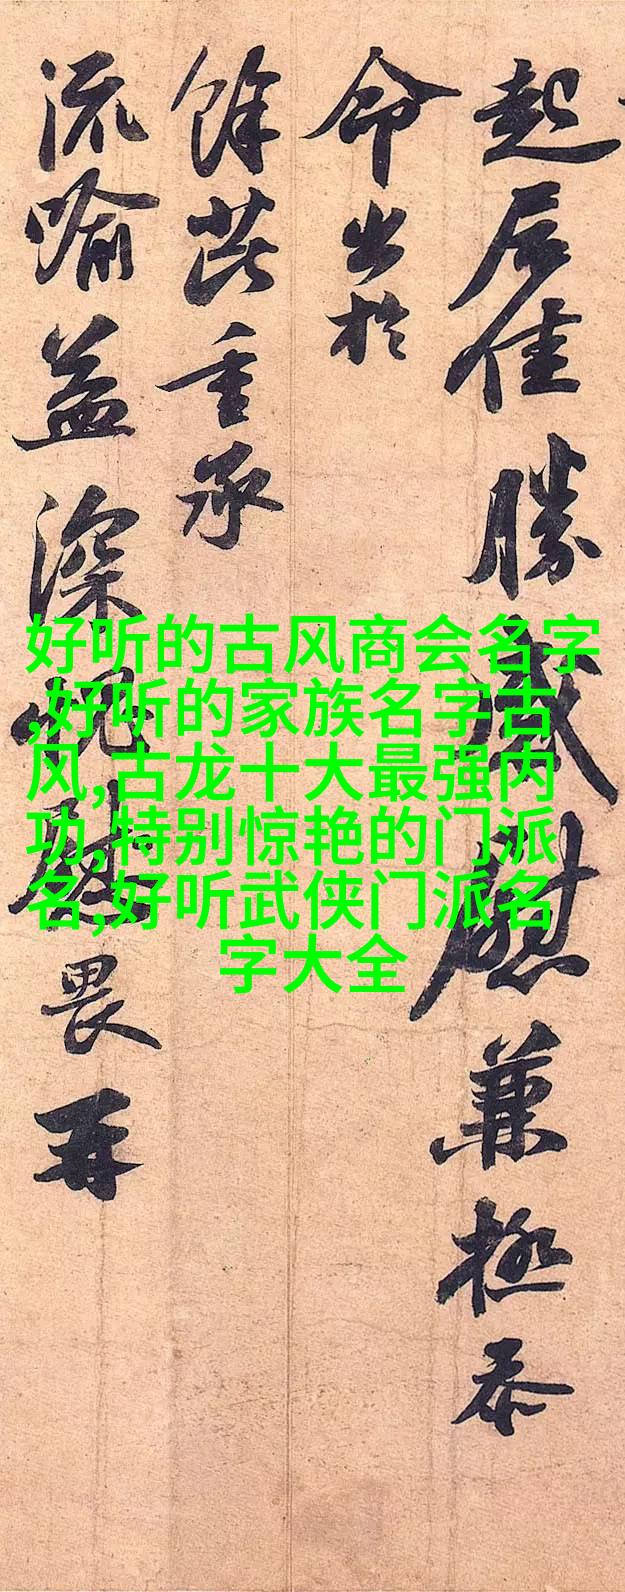 起居佳勝感慰兼極忝
命出於
餘芘重承
流喻益深愧畏再
好听的古风商会名字
,好听的家族名字古
风,古龙十大最强内
功,特别惊艳的门派
名,好听武侠门派名
字大全